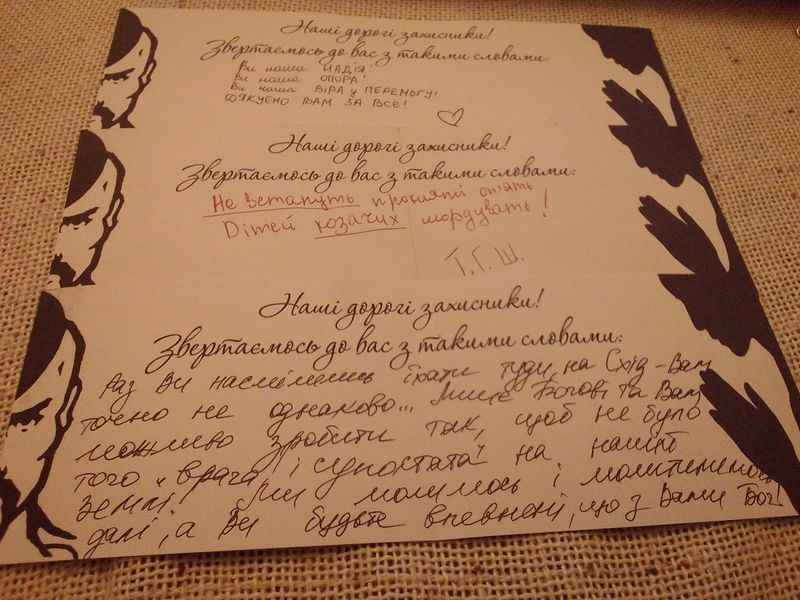 Наші дорогі захисники!
Звертаємось до вас з такими словами:
Ви наша НАДІЯ!
Ви наша ОПОРА!
Ви наша ВІРА у ПЕРЕМОГУ!
ДЯКУЄМО ВАМ ЗА ВСЕ!
Наші дорогі захисники!
Звертаємось до вас з такими словами:
Не встануть прокляті оп'ять
Дітей козачих мордувать!
Т.Г.Ш.
Наші дорогі захисники!
Звертаємось до вас з такими словами:
Раз Ви насмілились їхати туди, на Схід - Вам
точно не однаково... Лише Богові та Вам
можливо зробити так, щоб не було
того "врага і супостата" на нашій
землі! Ми молимось і молитимемось
далі, а Ви будьте впевнені, що з Вами Бог!